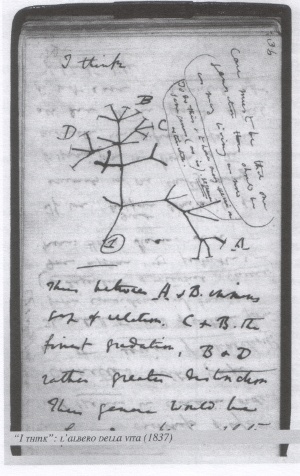 :36
I think
Case must be that one
generation then should be
as many living as now
To do this & to have many species in
same genus (as is) requires
extinction
B
C
D
A
1
Thus between A & B. immens
gap of relation. C & B. the
finest gradation, B & D
rather greater distinction
Thus genera would be
"I THINK": L'ALBERO DELLA VITA (1837)